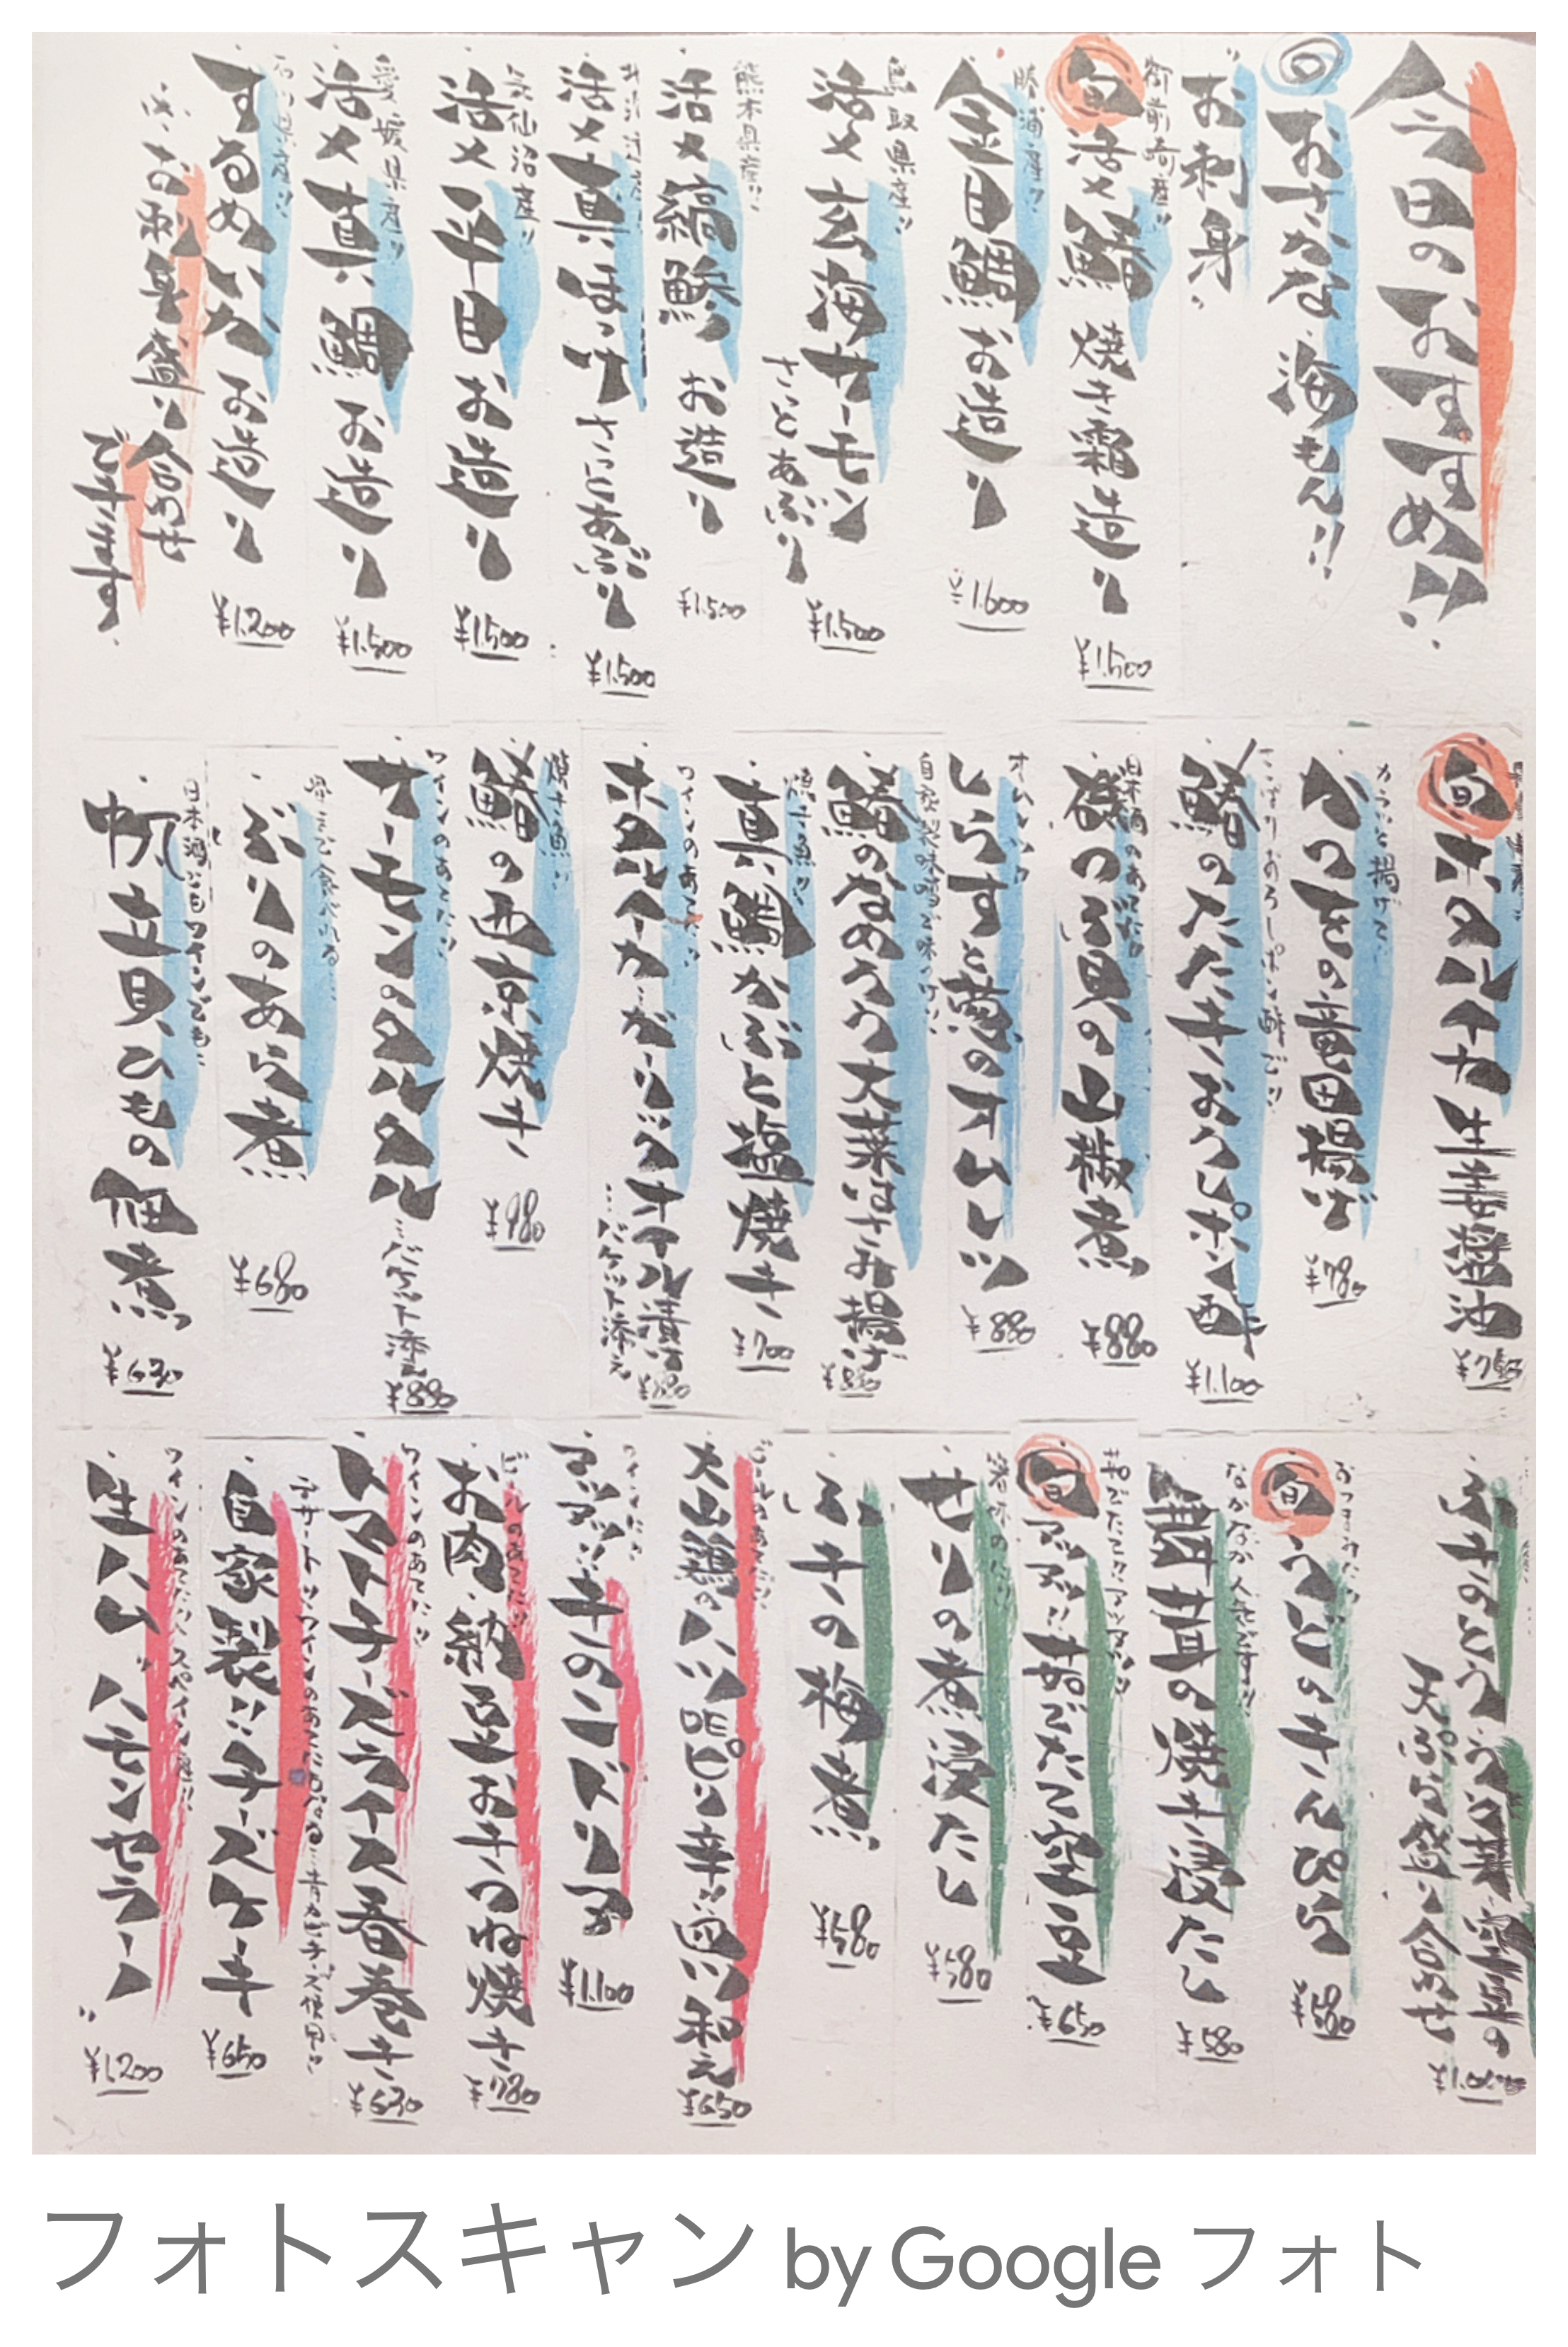 今日のおすすめ!!
◎おさかな 海もん!!
"お刺身"
御前崎産!!
旬 活〆鰆 焼き霜造り
¥1.500
勝浦産!!
金目鯛お造り
¥1.600
鳥取県産!!
活〆玄海サーモン
さっとあぶり
¥1.500
熊本県産!!
活〆縞鯵 お造り
¥1.500
活〆真ほっけ さっとあぶり
¥1.500
気仙沼産!!
活〆平目お造り
¥1.500
愛媛県産!!
活〆真鯛 お造り
¥1.500
するめいか お造り
¥1.200
お刺身盛り合わせ
できます
旬 ホタルイカ 生姜醤油
¥750
カラッと揚げて
¥780
さっぱりおろしポン酢で!!
鰆のたたきおろしポン酢
¥1.100
日本酒のあてに!!
磯つぶ貝の山椒煮
¥880
しらすと葱のオムレツ
¥880
自家製味噌で味つけ!!
鰆のなめろう大葉はさみ揚げ
焼き魚!!
真鯛かぶと塩焼き
¥700
ワインのあてに!!
ホタルイカ ガーリックオイル漬け
…バケット添え
焼き魚!!
鰆の西京焼き
¥980
ワインのあてに!!
サーモンのタルタル
…バケット添え
¥880
骨まで食べれる…
ぶりのあら煮
¥680
日本酒にもワインにも…
帆立貝ひもの佃煮
¥630
天ぷら盛り合わせ
おつまみに!!
旬 うどのきんぴら
¥580
なかなか人気です!!
舞茸の焼き浸たし
¥580
旬 アツアツ!!茹でたて空豆
¥650
春味のかおり
せりの煮浸たし
¥580
ふきの梅煮
¥580
ビールのあてに!!
大山鶏のハツDEピリ辛!!薬味和え
¥650
アツアツ!!牛のハンドリア
¥1.100
ビールのあてに!!
お肉、納豆おきつね焼き
¥780
ワインのあてに!!
トマトチーズライス春巻き
¥630
デザート!!ワインのあてにもなる…青カビチーズ使用!!
自家製!!チーズケーキ
¥650
ワインのあてに!!スペイン産!!
生ハム"ハモンセラーノ"
¥1.200
フォトスキャン by Google フォト